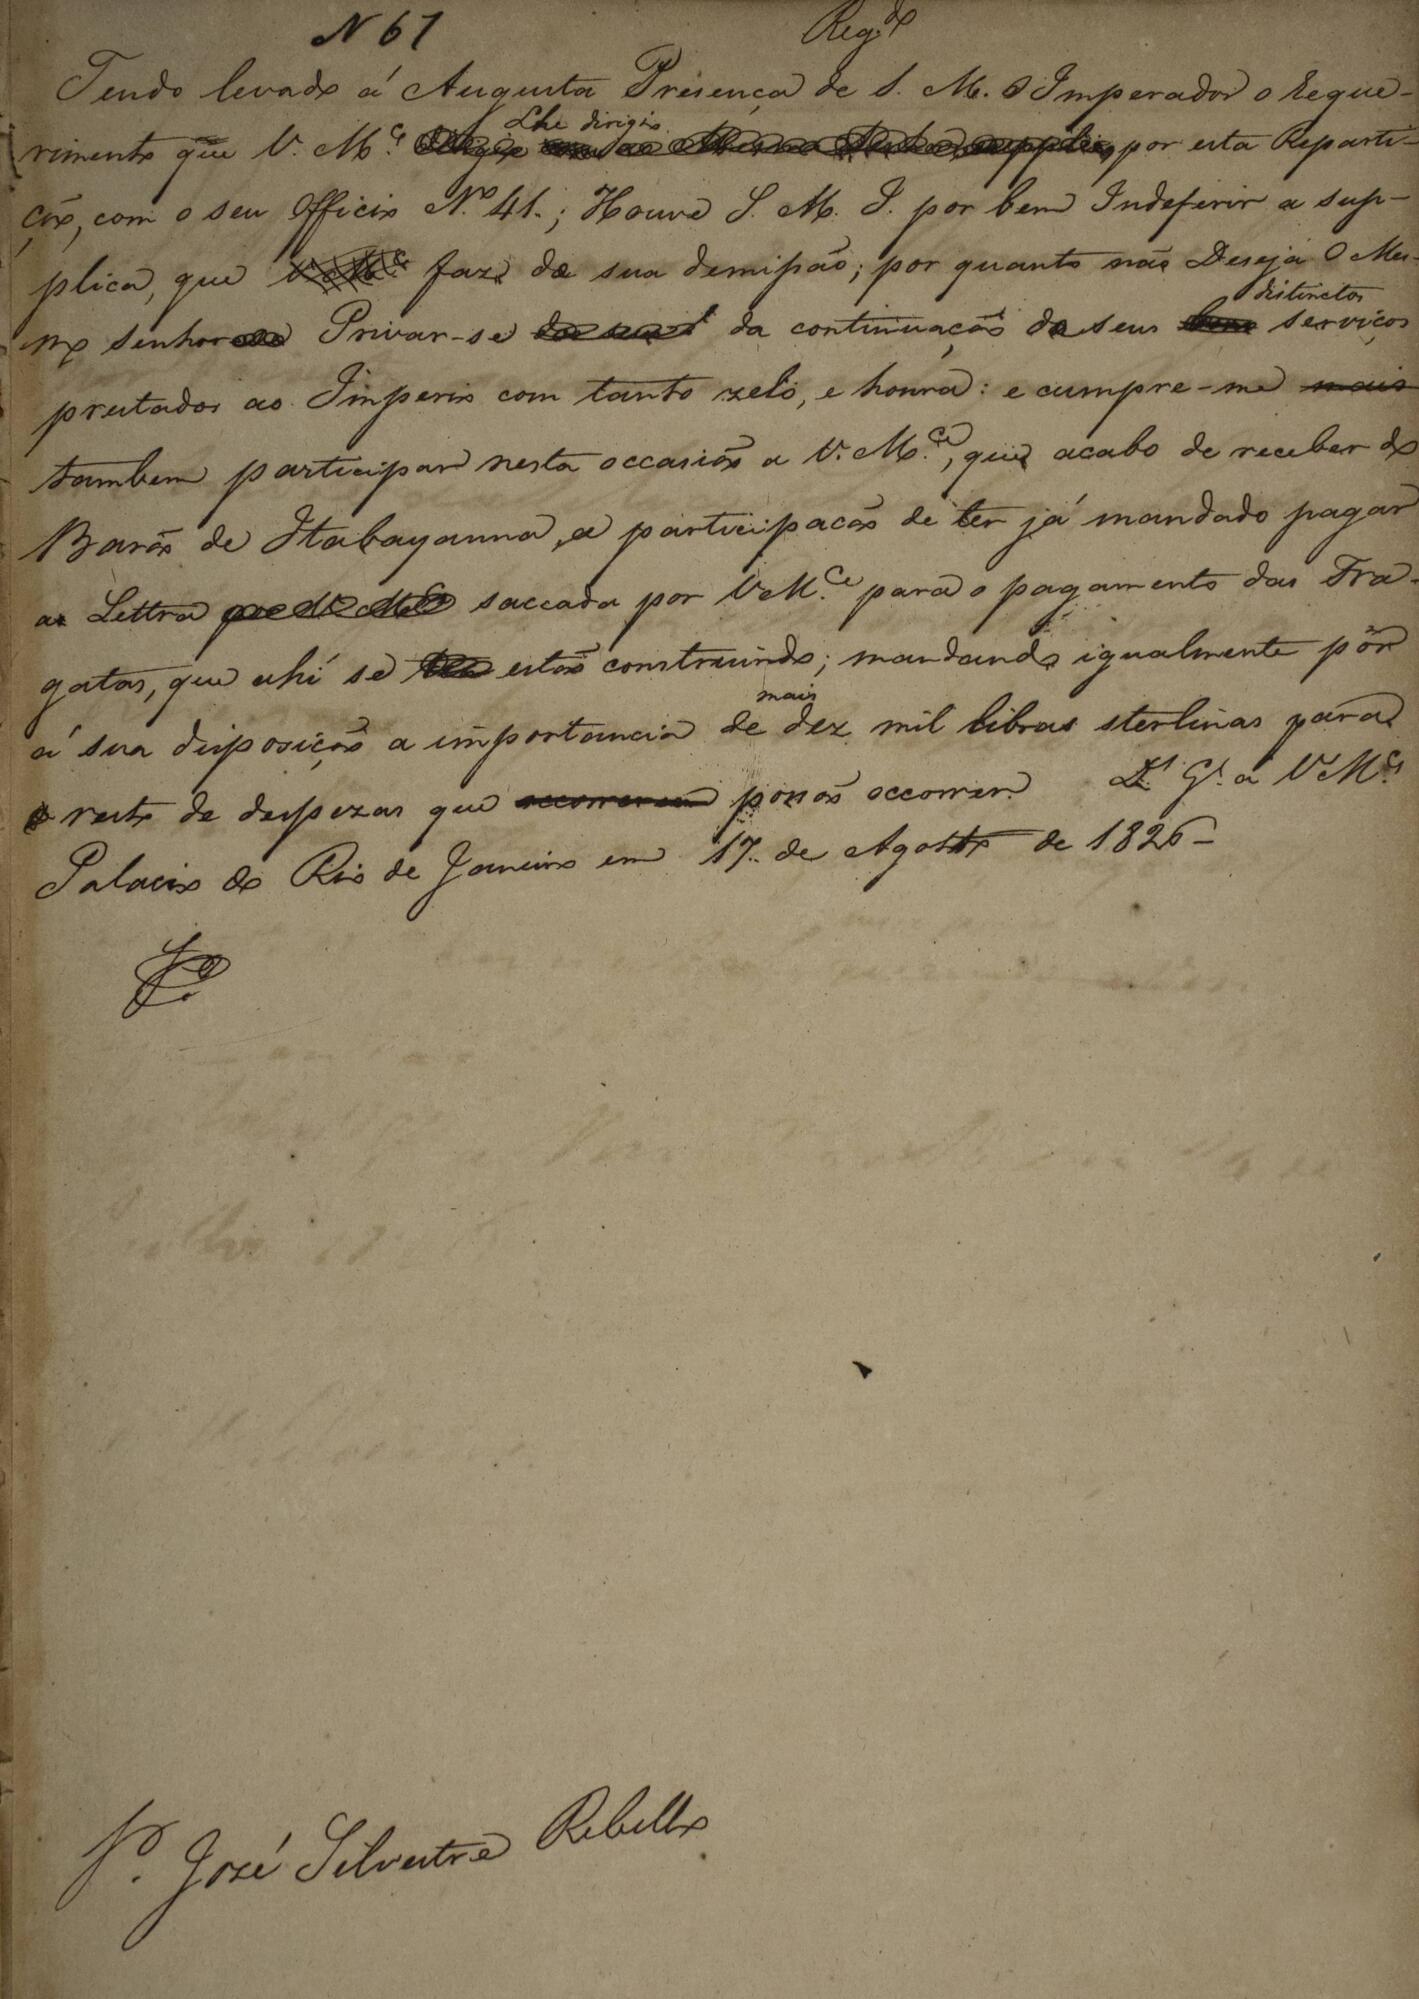 N 61
Reg.do
Tendo levado á Augusta Presença de S. M. O Imperador o reque-
rimento que V. M.ce Lhe dirigio por esta Reparti-
ção, com o seu officio N.º 41.; Houve S. M. I. por bem Indeferir a sup-
plica, que faz de sua demissão; por quanto não Deseja O Mes-
mo Senhor Privar-se da continuação de seus distinctos serviços
prestados ao Imperio com tanto zelo, e honra: e cumpre-me mais
tambem participar nesta occasião a V. M.ce, que acabo de receber do
Barão de Itabayanna, a participacão de ter já mandado pagar
a Lettra que V. M.ce saccada por V. M.ce para o pagamento das Fra-
gatas, que ahi se estão construindo; mandando igualmente pôr
á sua disposição a importancia de mais dez mil libras sterlinas para
o resto de despezas que occorrerem possão occorrer. D.s G.e a V. M.ce
Palacio do Rio de Janeiro em 17. de Agosto de 1826 –
S.r José Silvestre Rebello